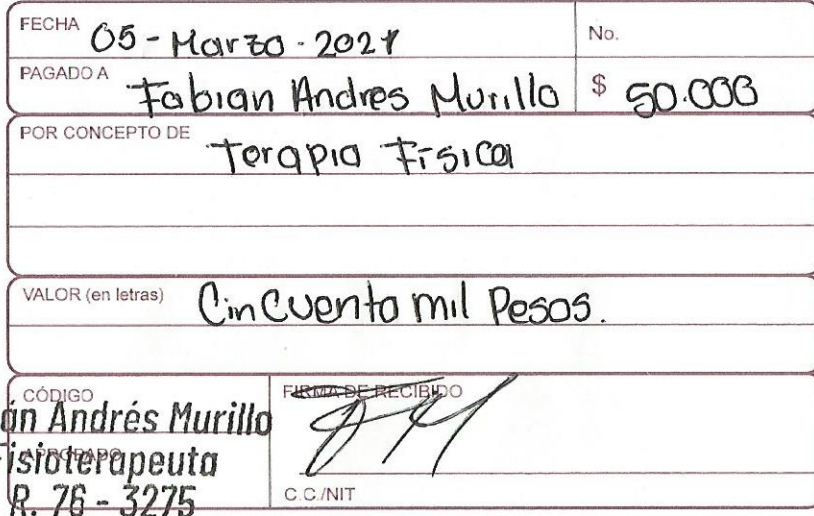 FECHA 05-Marzo-2021 No.
PAGADO A Fabian Andres Murillo $ 50.000
POR CONCEPTO DE Terapia Física
VALOR (en letras) Cincuenta mil Pesos.
CÓDIGO FIRMA DE RECIBIDO
án Andrés Murillo
APROBADO
Fisioterapeuta
R. 76 - 3275
C.C./NIT